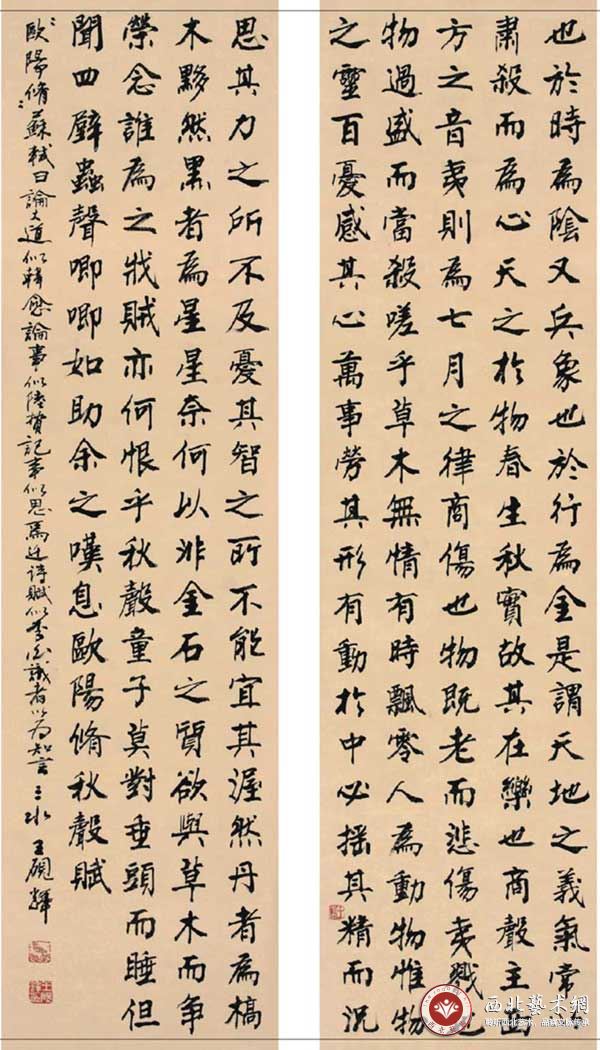 也於時為陰又兵象也於行為金是謂天地之義氣常以
肅殺而為心天之於物春生秋實故其在樂也商聲主西
方之音夷則為七月之律商傷也物既老而悲傷夷戮也
物過盛而當殺嗟乎草木無情有時飄零人為動物惟物
之靈百憂感其心萬事勞其形有動於中必搖其精而況
思其力之所不及憂其智之所不能宜其渥然丹者為槁
木黟然黑者為星星奈何以非金石之質欲與草木而爭
榮念誰為之戕賊亦何恨乎秋聲童子莫對垂頭而睡但
聞四壁蟲聲唧唧如助余之嘆息歐陽脩秋聲賦
歐陽脩蘇軾曰論大道似韓愈論事似陸贄記事似思馬迁詩賦似李白識者以為知言三水王硯輝
西北藝术網
聆听西北艺术、品味文脉传承